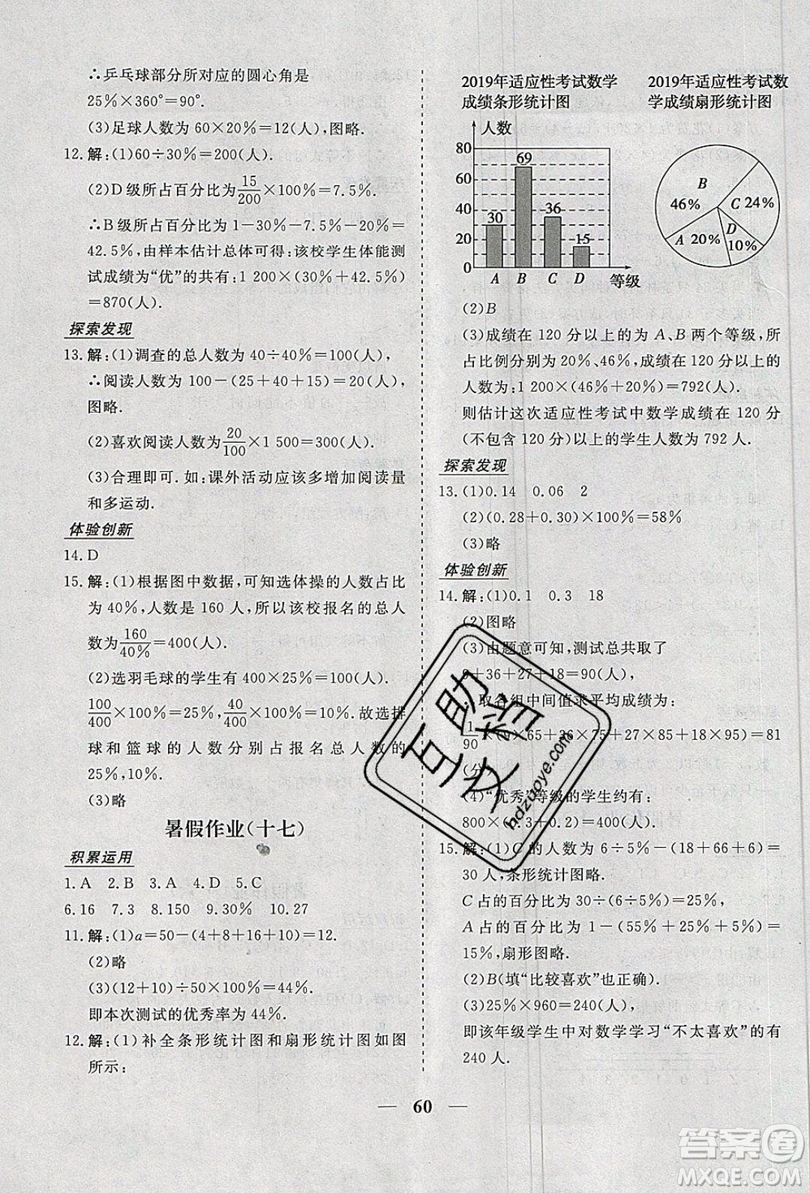 ∴乒乓球部分所对应的圆心角是
25%×360°=90°.
(3)足球人数为60×20%=12(人),图略.
12.解:(1)60÷30%=200(人).
(2)D级所占百分比为15/200×100%=7.5%.
∴B级所占百分比为1-30%-7.5%-20%=
42.5%,由样本估计总体可得:该校学生体能测
试成绩为“优”的共有:1 200×(30%+42.5%)
=870(人).
探索发现
13.解:(1)调查的总人数为40÷40%=100(人),
∴阅读人数为100-(25+40+15)=20(人),
图略.
(2)喜欢阅读人数为20/100×1 500=300(人).
(3)合理即可.如:课外活动应该多增加阅读量
和多运动.
体验创新
14.D
15.解:(1)根据图中数据,可知选体操的人数占比
为40%,人数是160人,所以该校报名的总人
数为160/40%=400(人).
(2)选羽毛球的学生有400×25%=100(人).
100/400×100%=25%,40/400×100%=10%.故选排
球和篮球的人数分别占报名总人数的
25%,10%.
(3)略
暑假作业(十七)
积累运用
1.A 2.B 3.A 4.D 5.C
6.16 7.3 8.150 9.30% 10.27
11.解:(1)a=50-(4+8+16+10)=12.
(2)略
(3)(12+10)÷50×100%=44%.
即本次测试的优秀率为44%.
12.解:(1)补全条形统计图和扇形统计图如图
所示:
2019年适应性考试数学
成绩条形统计图
人数
80
60
40
20
0
30
69
36
15
A B C D 等级
2019年适应性考试数
学成绩扇形统计图
B
46%
C 24%
A 20%
D
10%
(2)B
(3)成绩在120分以上的为A、B两个等级,所
占比例分别为20%、46%,成绩在120分以上的
人数为:1 200×(46%+20%)=792(人).
则估计这次适应性考试中数学成绩在120分
(不包含120分)以上的学生人数为792人.
探索发现
13.(1)0.14 0.06 2
(2)(0.28+0.30)×100%=58%
(3)略
体验创新
14.解:(1)0.1 0.3 18
(2)图略
(3)由题意可知,测试总共取了
9+36+27+18=90(人).
∴取各组中间值求平均成绩为:
1/90×(65×9+75×36+85×27+95×18)=81
(4)“优秀”等级的学生约有:
800×(0.3+0.2)=400(人).
15.解:(1)C占的人数为6÷5%-(18+66+6)=
30人,条形统计图略.
C占的百分比为1-(5%+25%+55%)=
15%,扇形图略.
(2)B(填“比较喜欢”也正确).
(3)25%×960=240(人).
即该年级学生中对数学学习“不太喜欢”的有
240人.
60
互助文档
hdzuoye.com
答案圈
MXQE.COM